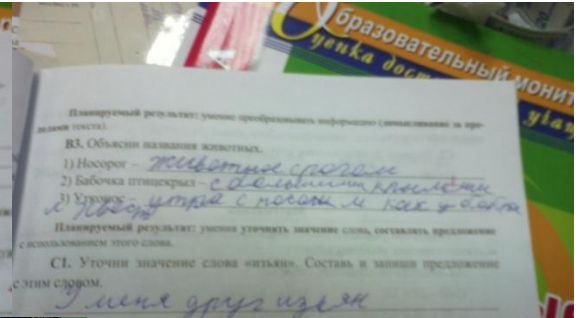 Образовательный монит
Оценка дост
учащ
Планируемый результат: умение преобразовывать информацию (домысливание за пре-
делами текста).
В3. Объясни названия животных.
1) Носорог – животные с рогом
2) Бабочка птицекрыл – с большими крыльями
3) Утконос – утра с носом как у
и хвост
Планируемый результат: умения уточнять значение слова, составлять предложение
с использованием этого слова.
С1. Уточни значение слова «изъян». Составь и запиши предложение
с этим словом.
У меня друг изеян